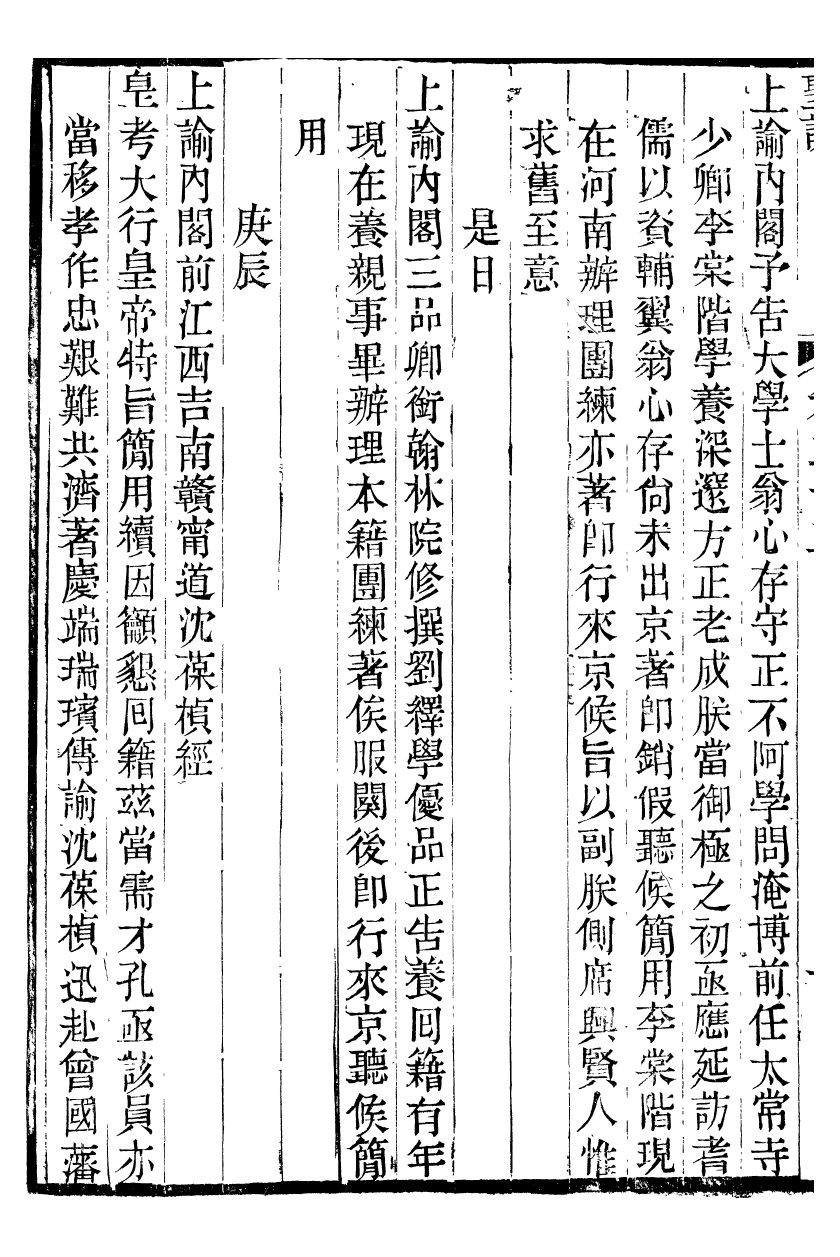 上諭內閣予告大學士翁心存守正不阿學問淹博前任太常寺
少卿李棠階學養深邃方正老成朕當御極之初亟應延訪耆
儒以資輔翼翁心存尙未出京著卽銷假聽候簡用李棠階現
在河南辦理團練亦著卽行來京候旨以副朕側席興賢人惟
求舊至意
是日
上諭內閣三品卿銜翰林院修撰劉繹學優品正告養回籍有年
現在養親事畢辦理本籍團練著俟服闋後卽行來京聽候簡
用
庚辰
上諭內閣前江西吉南贛甯道沈葆楨經
皇考大行皇帝特旨簡用續因籲懇回籍茲當需才孔亟該員亦
當移孝作忠艱難共濟著慶端瑞璸傳諭沈葆楨迅赴曾國藩